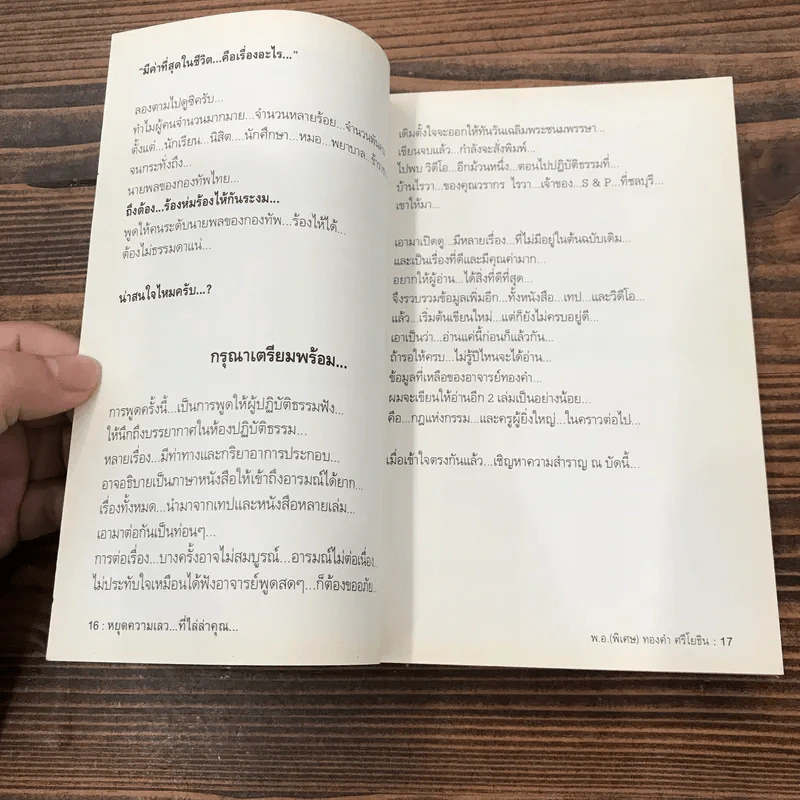 “มีค่าที่สุดในชีวิต...คือเรื่องอะไร...”
ลองตามไปดูซิครับ...
ทำไมผู้คนจำนวนมากมาย...จำนวนหลายร้อย...จำนวนพัน
ตั้งแต่...นักเรียน...นิสิต...นักศึกษา...หมอ...พยาบาล...
จนกระทั่งถึง...
นายพลของกองทัพไทย...
ถึงต้อง...ร้องห่มร้องไห้กันระงม...
พูดให้คนระดับนายพลของกองทัพ...ร้องไห้ได้...
ต้องไม่ธรรมดาแน่...
น่าสนใจไหมครับ...?
กรุณาเตรียมพร้อม...
การพูดครั้งนี้...เป็นการพูดให้ผู้ปฏิบัติธรรมฟัง...
ให้นึกถึงบรรยากาศในห้องปฏิบัติธรรม...
หลายเรื่อง...มีท่าทางและกริยาอาการประกอบ...
อาจอธิบายเป็นภาษาหนังสือให้เข้าถึงอารมณ์ได้ยาก...
เรื่องทั้งหมด...นำมาจากเทปและหนังสือหลายเล่ม...
เอามาต่อกันเป็นท่อนๆ...
การต่อเรื่อง...บางครั้งอาจไม่สมบูรณ์...อารมณ์ไม่ต่อเนื่อง...
ไม่ประทับใจเหมือนได้ฟังอาจารย์พูดสดๆ...ก็ต้องขออภัย...
16 : หยุดความเลว...ที่ไล่ล่าคุณ...
เดิมตั้งใจจะออกให้ทันวันเฉลิมพระชนมพรรษา...
เขียนจบแล้ว...กำลังจะสั่งพิมพ์...
ไปพบ วิดีโอ...อีกม้วนหนึ่ง...ตอนไปปฏิบัติธรรมที่...
บ้านไรวา...ของคุณวรากร ไรวา...เจ้าของ...S & P...ที่ชลบุรี...
เขาให้มา...
เอามาเปิดดู...มีหลายเรื่อง...ที่ไม่มีอยู่ในต้นฉบับเดิม...
และเป็นเรื่องที่ดีและมีคุณค่ามาก...
อยากให้ผู้อ่าน...ได้สิ่งที่ดีที่สุด...
จึงรวบรวมข้อมูลเพิ่มอีก...ทั้งหนังสือ...เทป...และวิดีโอ...
แล้ว...เริ่มต้นเขียนใหม่...แต่ก็ยังไม่ครบอยู่ดี...
เอาเป็นว่า...อ่านแค่นี้ก่อนก็แล้วกัน...
ถ้ารอให้ครบ...ไม่รู้ปีไหนจะได้อ่าน...
ข้อมูลที่เหลือของอาจารย์ทองคำ...
ผมจะเขียนให้อ่านอีก 2 เล่มเป็นอย่างน้อย...
คือ...กฎแห่งกรรม...และครูผู้ยิ่งใหญ่...ในคราวต่อไป...
เมื่อเข้าใจตรงกันแล้ว...เชิญหาความสำราญ ณ บัดนี้...
พ.อ.(พิเศษ) ทองคำ ศรีโยธิน : 17